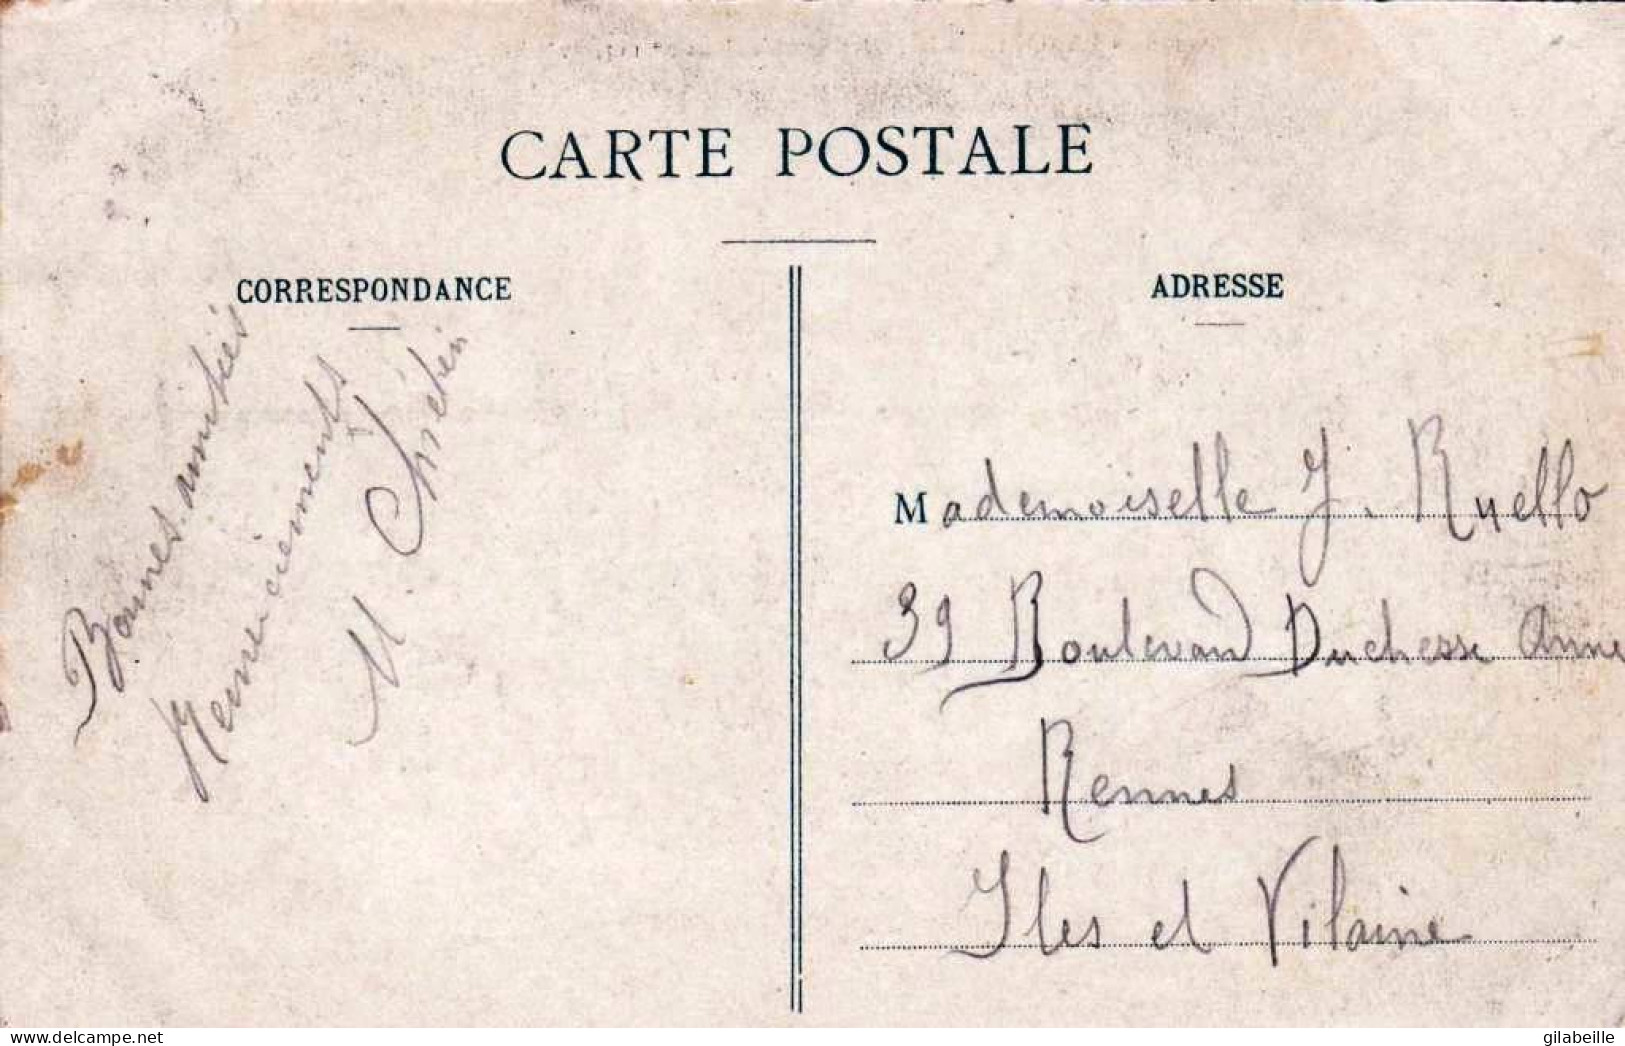 CARTE POSTALE
CORRESPONDANCE
Bonnes amitiés
Remerciements
M. Chrétien
ADRESSE
Mademoiselle J. Ruello
39 Boulevard Duchesse Anne
Rennes
Iles et Vilaine
delcampe.net
gilabeille